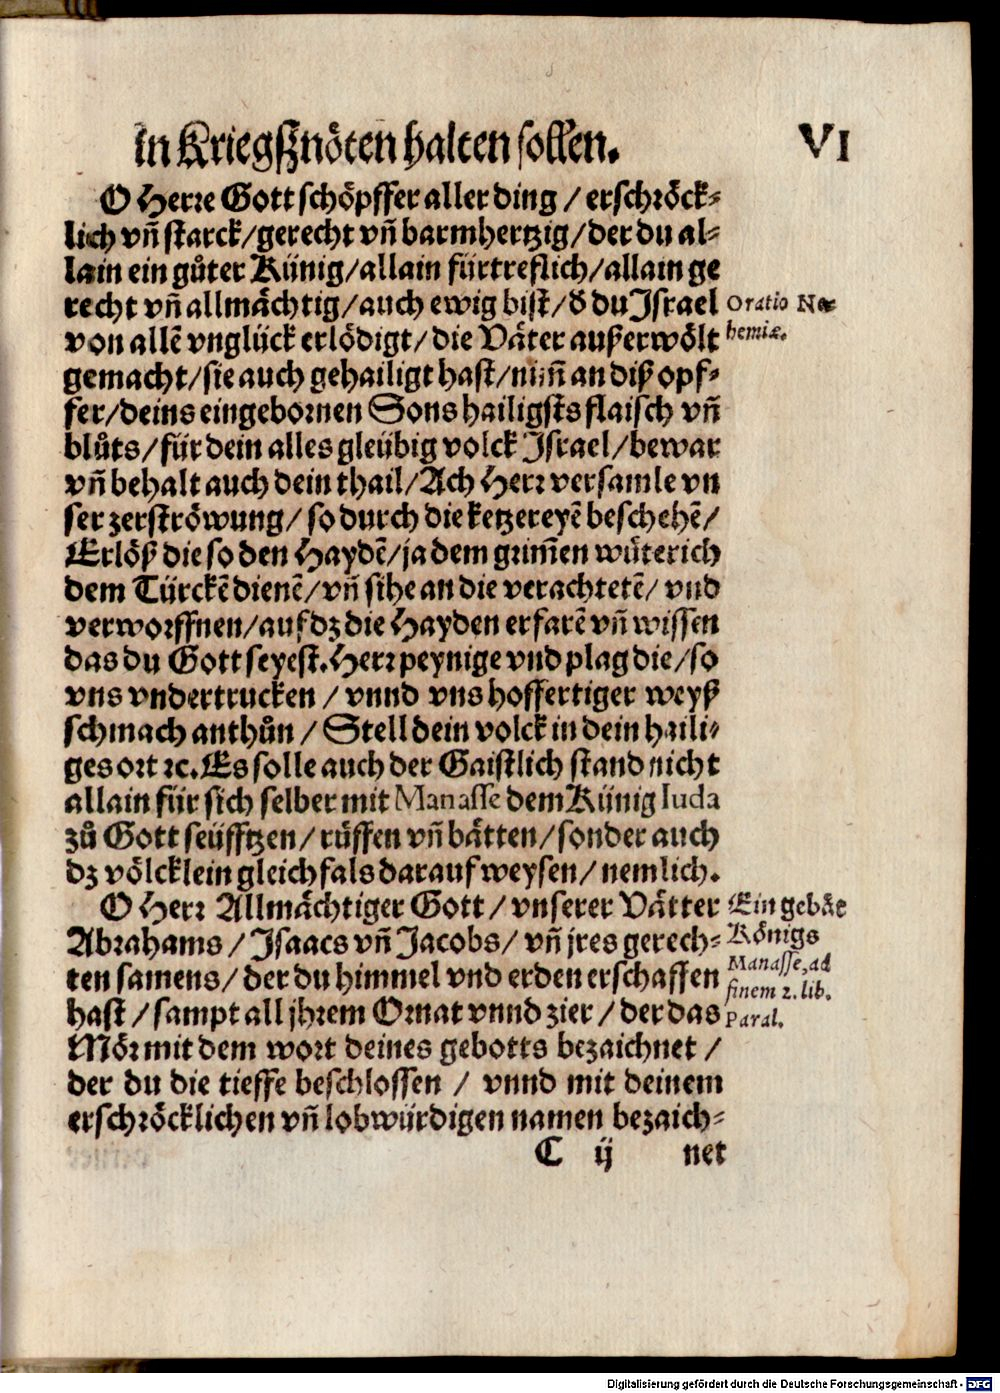 in Kriegßnöten halten sollen. VI
O Herre Gott schöpffer aller ding / erschröck⸗
lich vn̄ starck/gerecht vn̄ barmhertzig/der du al⸗
lain ein gůter Künig/allain fürtreflich/allain ge
recht vn̄ allmächtig/auch ewig bist/d̕ du Israel
Oratio Ne⸗
hemiæ.
von allē vnglück erlödigt/die Väter außerwölt
gemacht/sie auch gehailigt hast/nim̄ an diß opf⸗
fer/deins eingebornen Sons hailigsts flaisch vn̄
blůts/für dein alles gleübig volck Israel/bewar
vn̄ behalt auch dein thail/Ach Herr versamle vn
ser zerströwung/so durch die ketzereyē beschehē/
Erlöß die so den Haydē/ja dem grim̄en wüterich
dem Türckē dienē/vn̄ sihe an die verachtetē/ vnd
verworffnen/auf dz die Hayden erfarē vn̄ wissen
das du Gott seyest. Herr peynige vnd plag die/so
vns vndertrucken / vnnd vns hoffertiger weyß
schmach anthůn / Stell dein volck in dein haili⸗
ges ort ꝛc. Es solle auch der Gaistlich stand nicht
allain für sich selber mit Manasse dem Künig Iuda
zů Gott seüfftzen/ rüffen vn̄ bätten/sonder auch
dz völcklein gleichfals darauf weysen/ nemlich.
O Herr Allmächtiger Gott / vnserer Vätter
Abrahams / Isaacs vn̄ Jacobs/ vn̄ jres gerech⸗
ten samens/ der du himmel vnd erden erschaffen
hast / sampt all jhrem Ornat vnnd zier / der das
Ein gebät
Königs
Manasse, ad
finem 2. lib.
Paral.
Mör mit dem wort deines gebotts bezaichnet /
der du die tieffe beschlossen / vnnd mit deinem
erschröcklichen vn̄ lobwürdigen namen bezaich⸗
C ij net
Digitalisierung gefördert durch die Deutsche Forschungsgemeinschaft - DFG